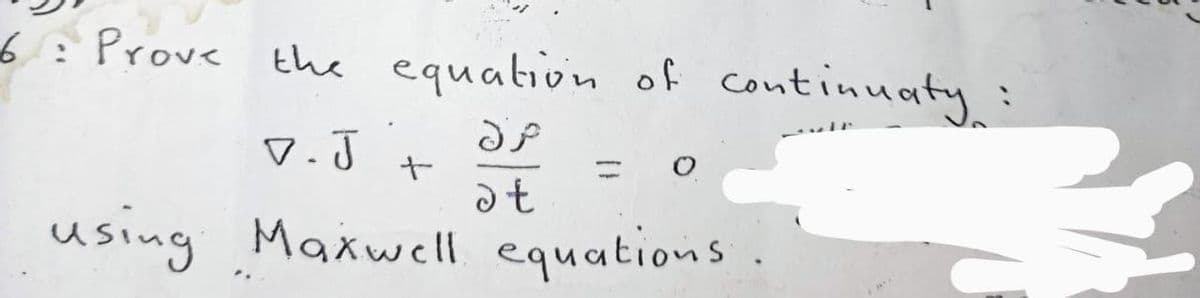 6 : Prove the equation of continuaty :
∇.J + ∂ρ/∂t = 0
using Maxwell equations.